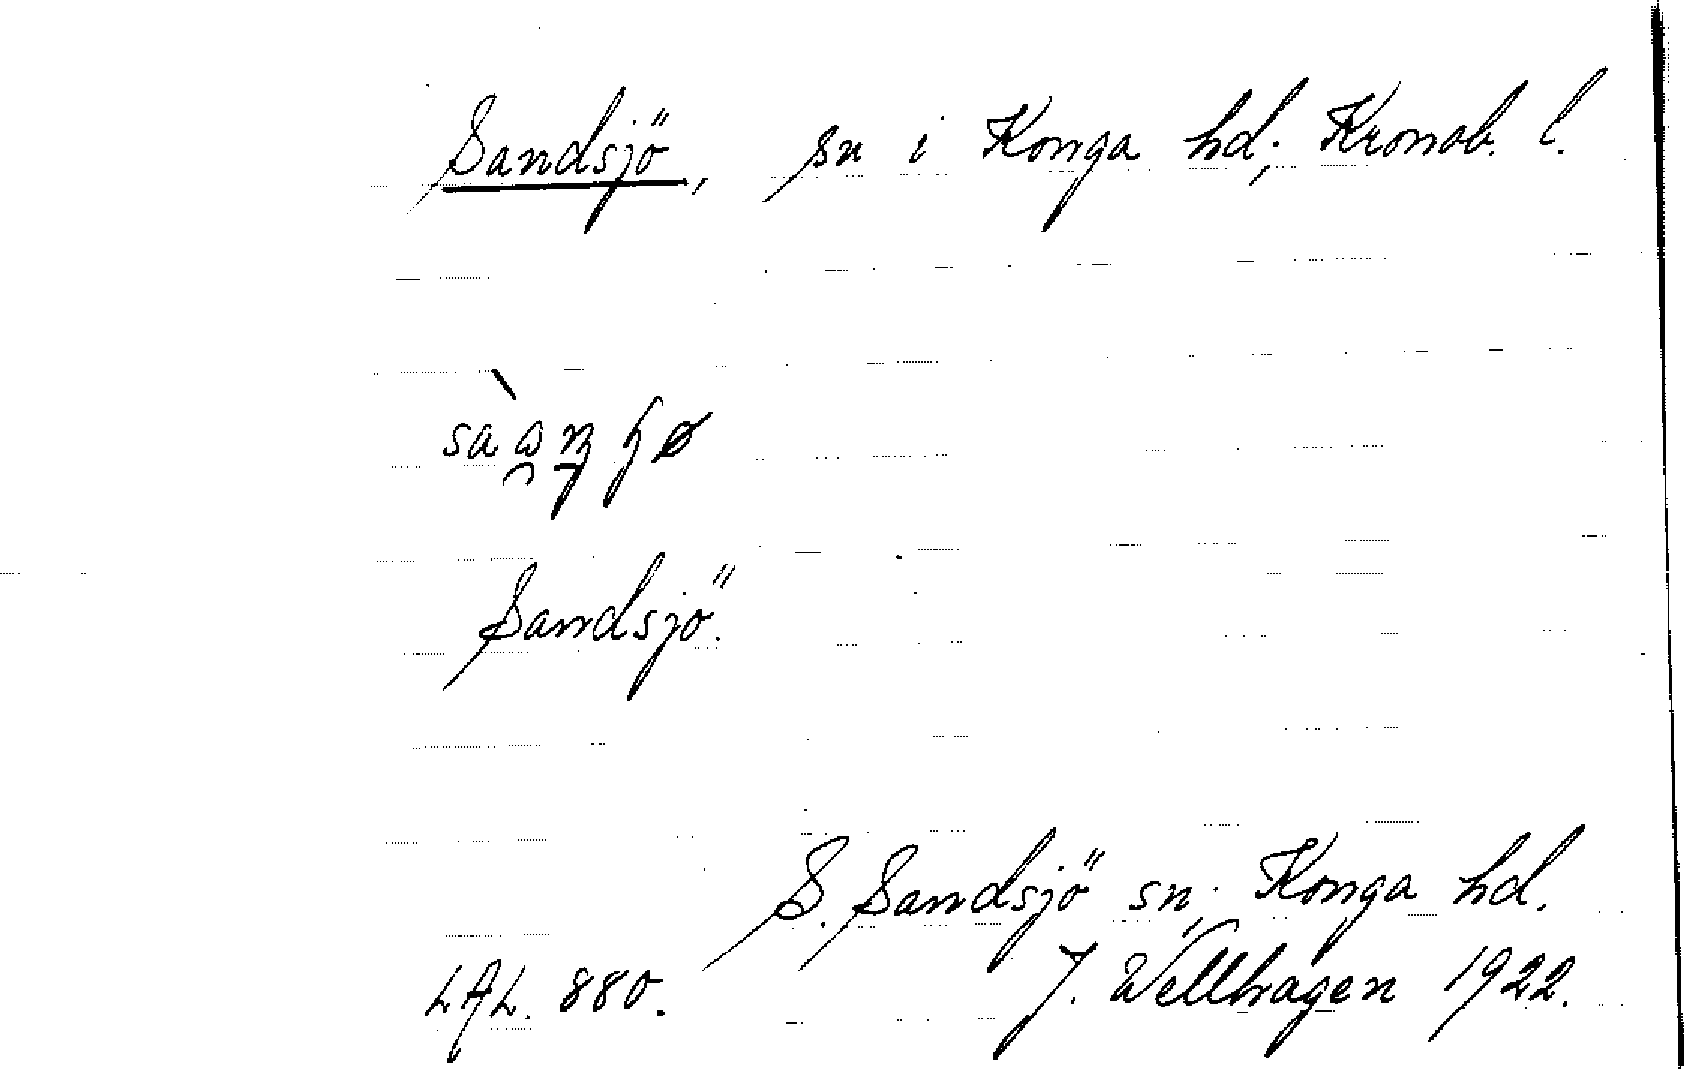 Sandsjö, sn i Konga hd; Kronob. l.
Sandsjö.
S. Sandsjö sn, Konga hd.
LAL. 880. J. Wellhagen 1922.